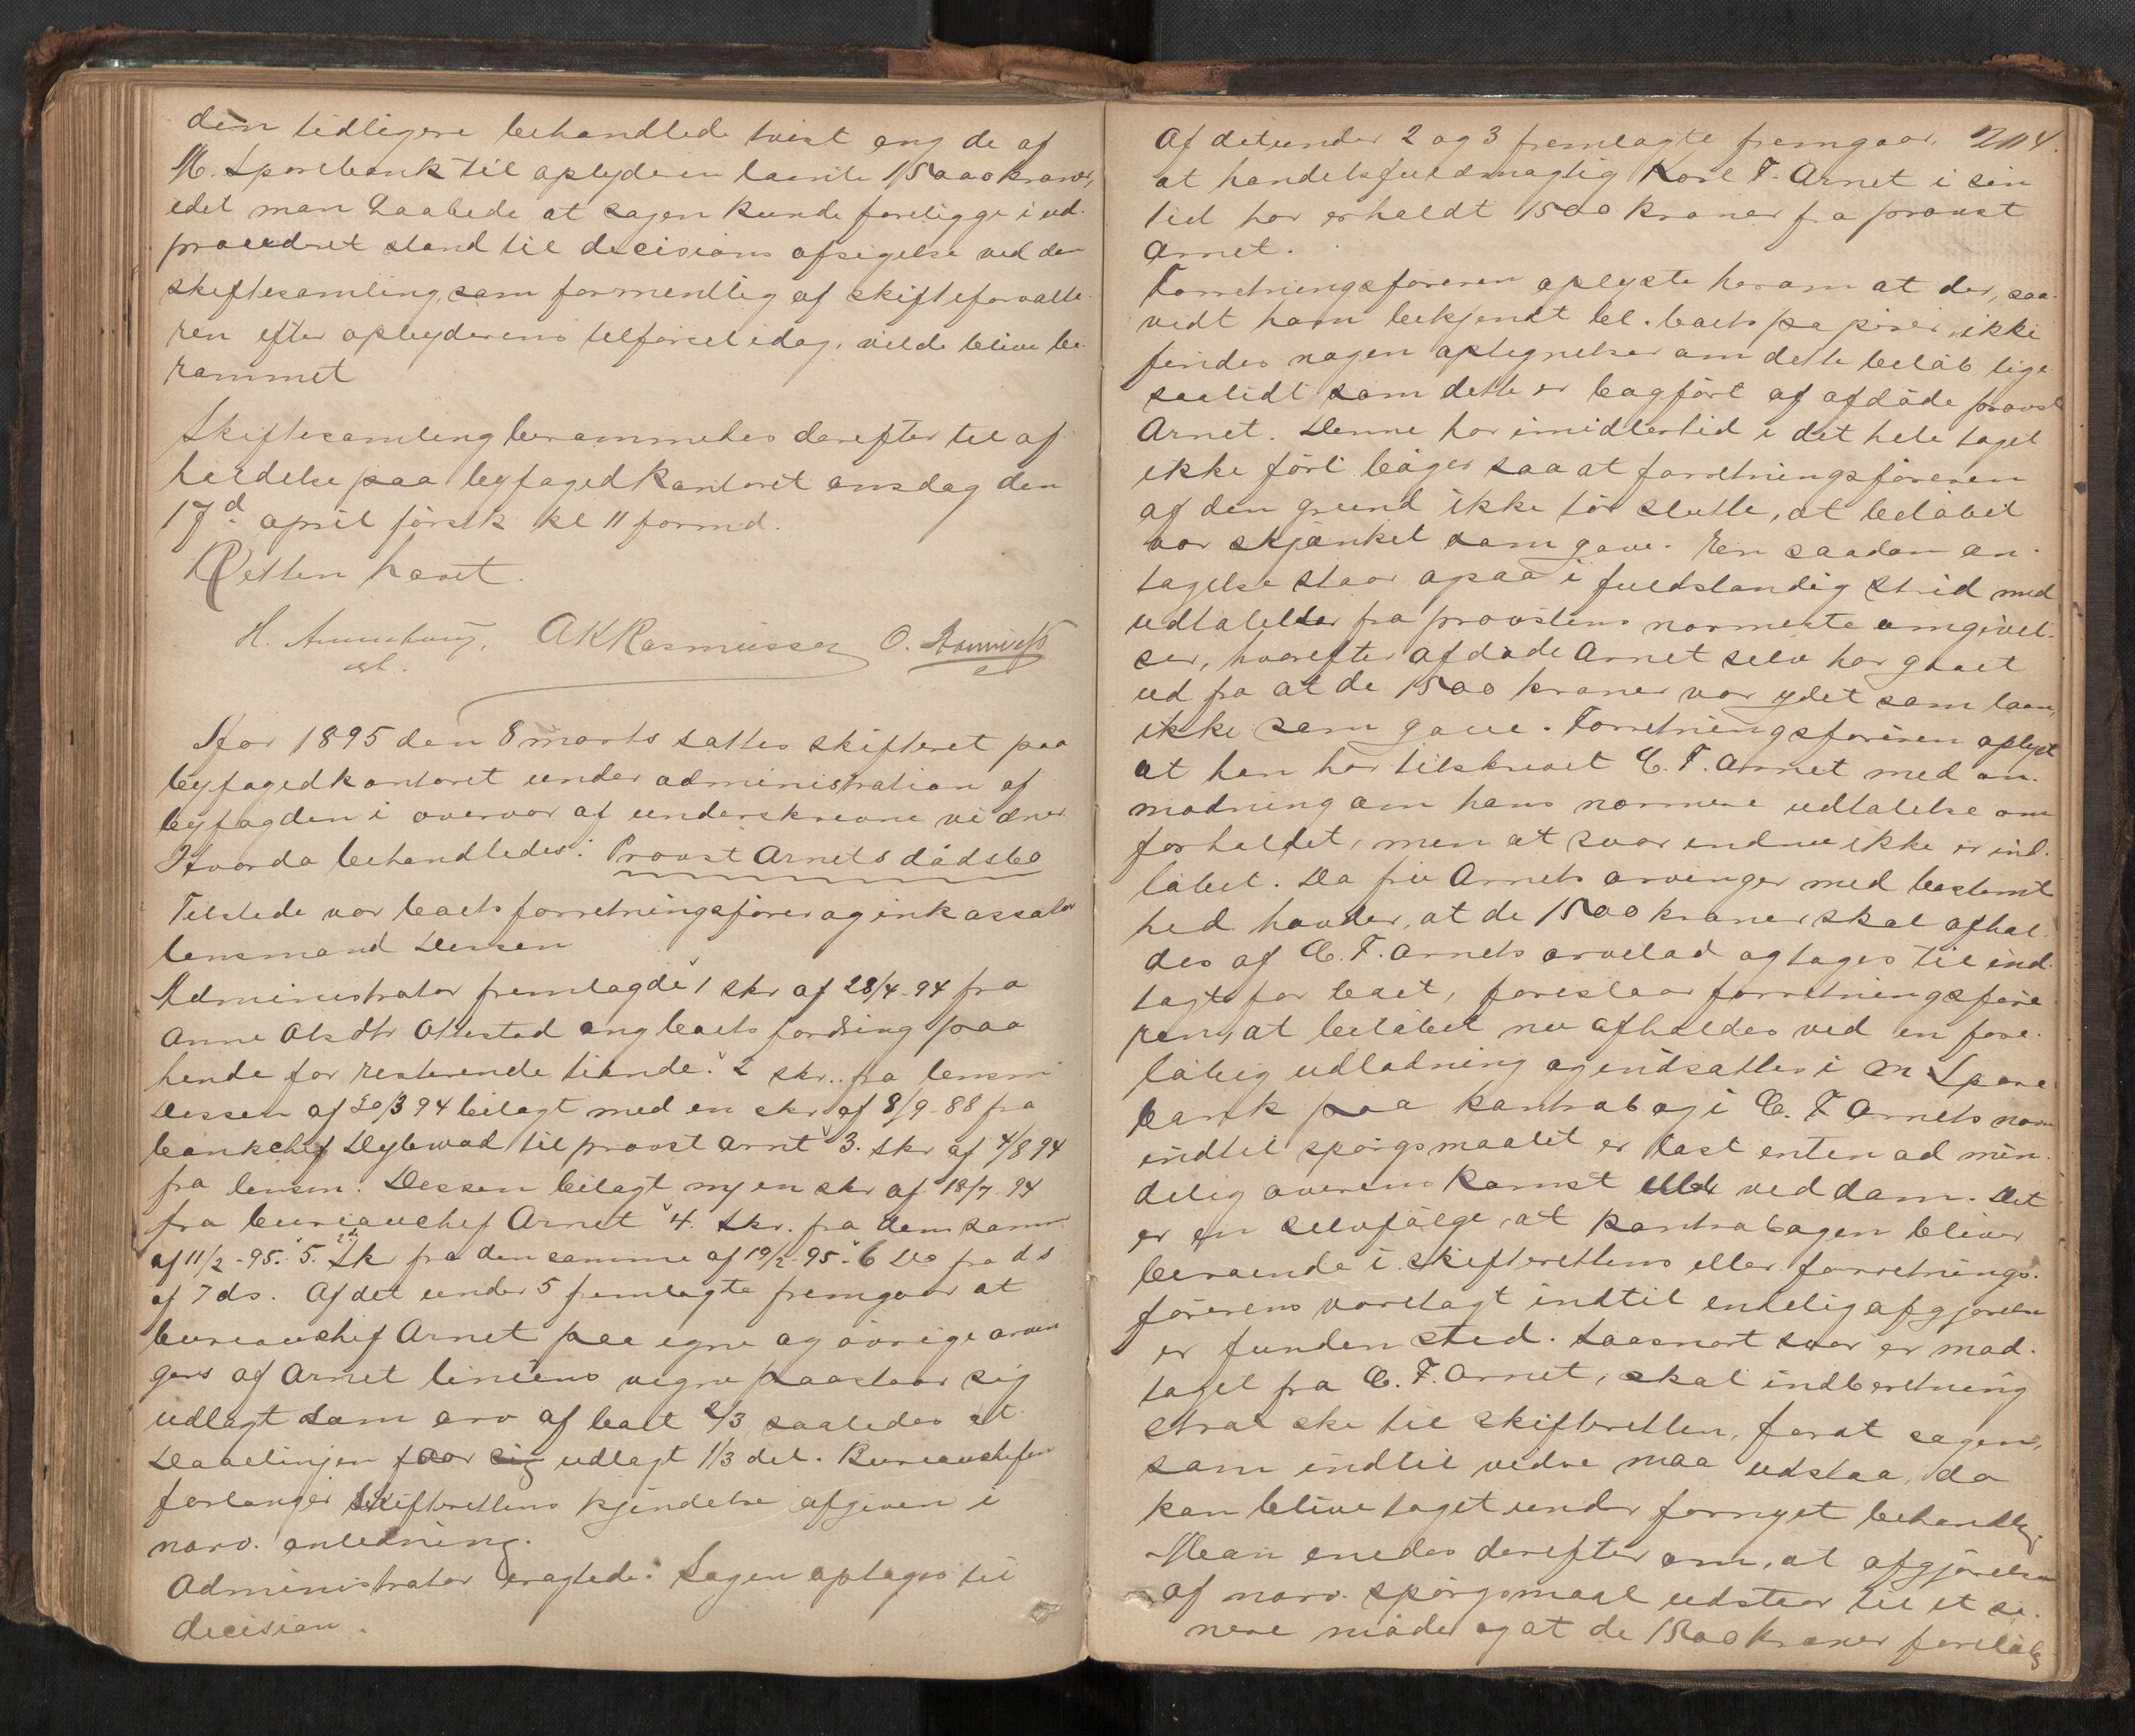 den tidligere behandlede tvist ang de af
M. Sparebank til opbyderen laante 15000 kroner,
idet man haabede at sagen kunde foreligge i ud-
proceduret stand til decisions afsigelse ved den
skiftesamling, som formentlig af skifteforvalte-
ren efter opbyderens tilførsel idag, vilde blive be-
rammet
Skiftesamling berammedes derefter til af
holdelse paa byfogedkontoret onsdag den
17d april førstk kl 11 formd.
Retten hævet.
AKRasmussen O.
Aar 1895 den 8 marts sattes skifteret paa
byfogedkontoret under administration af
byfogden i overvær af underskrevne vidner
Hvorda behandledes: Provst Arnets dødsbo
Tilstede var boets forretningsfører og inkassator
lensmand Dessen
Administrator fremlagde 1 skr af 28/4-94 fra
Anne Olsdtr Ottestad ang boets fordring paa
hende for resterende tiende. 2 skr. fra lensm
Dessen af 30/3 94 bilagt med en skr af 8/9-88 fra
bankchef Dybwad til provst Arnt 3. Skr af 4/8 94
fra lensm. Dessen bilagt m/ en skr af 18/7 94
fra bureauchef Arnet 4. Skr. fra dem samme
af 11/2-95. 5. Sk fra den samme af 19/2-95. 6 Do fra ds
af 7 ds. Af det under 5 fremlagte fremgaar at
bureauchef Arnet paa egne og øvrige arvin
gers af Arnet liniens vegne paastaar sig
udlagt som arv af boet 2/3 saaledes at
Daaelinjen faar sig udlagt 1/3 del. Bureauchefen
forlanger skifterettens kjendelse afgiven i
nærv. anledning.
Administrator eragtede: Sagen optages til
decision.
Af det under 2 og 3 fremlagte fremgaar, 204.
at handelsfuldmægtig Karl F. Arnet i sin
tid har erholdt 1500 kroner fra provst
Arnet.
Forretningsføreren oplyste herom at der, saa-
vidt ham bekjendt bl. boets papirer, ikke
findes nogen optegnelser om dette beløb lige
saalidt som dette er bogført af afdøde provst
Arnet. Denne har imidlertid i det hele taget
ikke ført bøger saa at forretningsføreren
af den grund ikke tør slutte, at beløbet
var skjænket som gave. En saadan an-
tagelse staar ogsaa i fuldstændig strid med
udtalelser fra provstens nærmeste omgivel-
ser, hvorefter afdøde Arnet selv har gaaet
ud fra at de 1500 kroner var ydet som laan,
ikke som gave. Forretningsføreren oplyst
at han har tilskrevet C. F. Arnet med an-
modning om hans nærmere udtalelse om
forholdet, men at svar endnu ikke er ind-
løbet. Da fru Arnets arvinger med bestemt
hed hævder, at de 1500 kroner skal afhol-
des af C. F. Arnets arvelod og tages til ind-
tægt for boet, foreslaar forretningsføre
ren, at beløbet nu afholdes ved en fore-
løbig udlodning og indsættes i M Spare
bank paa kontrabog i C. F Arnets navn
indtil spørgsmaalet er løst enten ad min-
delig overenskomst eller ved dom. Det
er en selvfølge, at kontrabogen bliver
beroende i skifterettens eller forretnings-
førerens varetægt indtil endelig afgjørelse
er funden sted. Saasnart svar er mod-
taget fra C. F. Arnet, skal indberetning
strax ske til skifteretten, forat sagen,
som indtil vidre maa udstaa, da
kan blive taget under fornyet behandlg
Man enedes derefter om, at afgjørelsen
af nærv. spørgsmaal udstaar til et se-
nere møde og at de 1500 kroner foreløbig